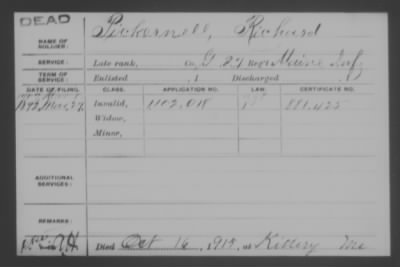 DEAD
NAME OF SOLDIER: Pickernell, Richard
SERVICE: Late rank, Co. G, 27 Reg't Maine Inf
TERM OF SERVICE: Enlisted , 1 Discharged , 1
DATE OF FILING. CLASS. APPLICATION NO. LAW. CERTIFICATE NO.
1892, Mar. 29. Invalid, 1102,018 881,425
Widow,
Minor,
ADDITIONAL SERVICES:
REMARKS:
Died Oct 16, 191 , at Kittery Me